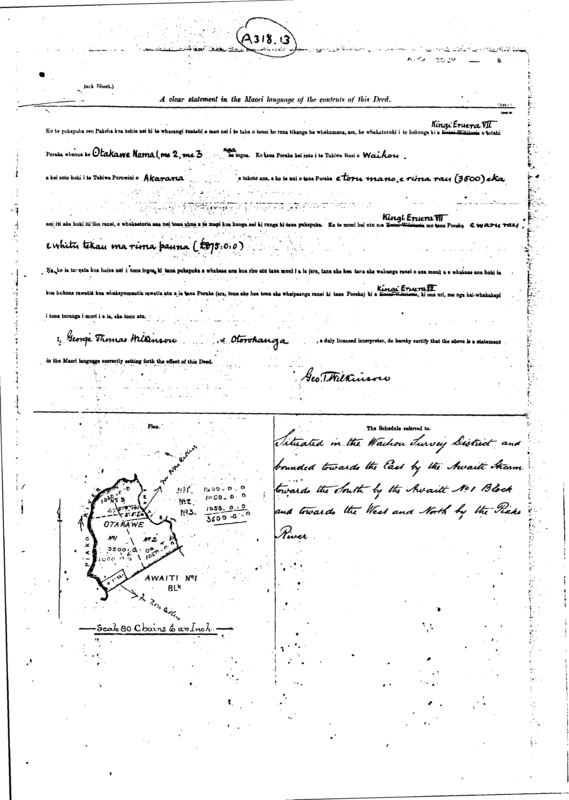 A318.13
6
(Back Sheet.)
A clear statement in the Maori language of the contents of this Deed.
Kingi Eruera VII
Ko te pukapuka reo Pakeha kua tuhia nei ki te wharangi tuatahi a mau nei i te taha o tenei ko tona tikanga he whakamana, ara, he whakatuturu i te hokonga ki a Kuini Wikitoria o tetahi
Poraka whenua ko Otakawe Nama 1, me 2, me 3 nga ingoa. Ko taua Poraka kei roto i te Takiwa Ruri o Waihou.
a kei roto hoki i te Takiwa Porowini o Akarana e takoto ana, a ko te nui o taua Poraka e toru mano, e rima rau (3500) eka
Kingi Eruera VII
nei iti ake hoki iti iho ranei, e whakaaturia ana nei tona ahua e te mapi kua hanga nei ki runga ki tana pukapuka. Ko te moni hei utu mo Kuini Wikitoria mo taua Poraka e waru rau.
e whitu tekau ma rima pauna (£875:0:0)
Na, ko ia tangata kua haina nei i tona ingoa ki taua pukapuka e whakaae ana kua riro atu taua moni i a ia (ara, tana ake hea tana ake wahanga ranei o ana moni) a e whakaae ana hoki ia
Kingi Eruera VII
kua hokona rawatia kua whakapumautia rawatia atu e ia taua Poraka (ara, tona ake hea tona ake whaipaanga ranei ki taua Poraka) ki a Kuini Wikitoria, ki ona uri, me nga kai-whakakapi
i tona turanga i muri i a ia, ake tonu atu.
I, George Thomas Wilkinson, of Otorohanga, a duly licensed interpreter, do hereby certify that the above is a statement
in the Maori language correctly setting forth the effect of this Deed.
Geo. T. Wilkinson
Plan.
PIAKO RIVER
OTAKAWE
No 1
No 2
3500. 0. 0
AWAITI No 1
Blk
No 1. 1000-0-0
No 2. 1000.0.0
No 3.
3500-0-0
Scale 80 Chains to an Inch.
The Schedule referred to.
Situated in the Waihou Survey District and
bounded towards the East by the Awaiti Stream
towards the South by the Awaiti No 1 Block
and towards the West and North by the Piako
River